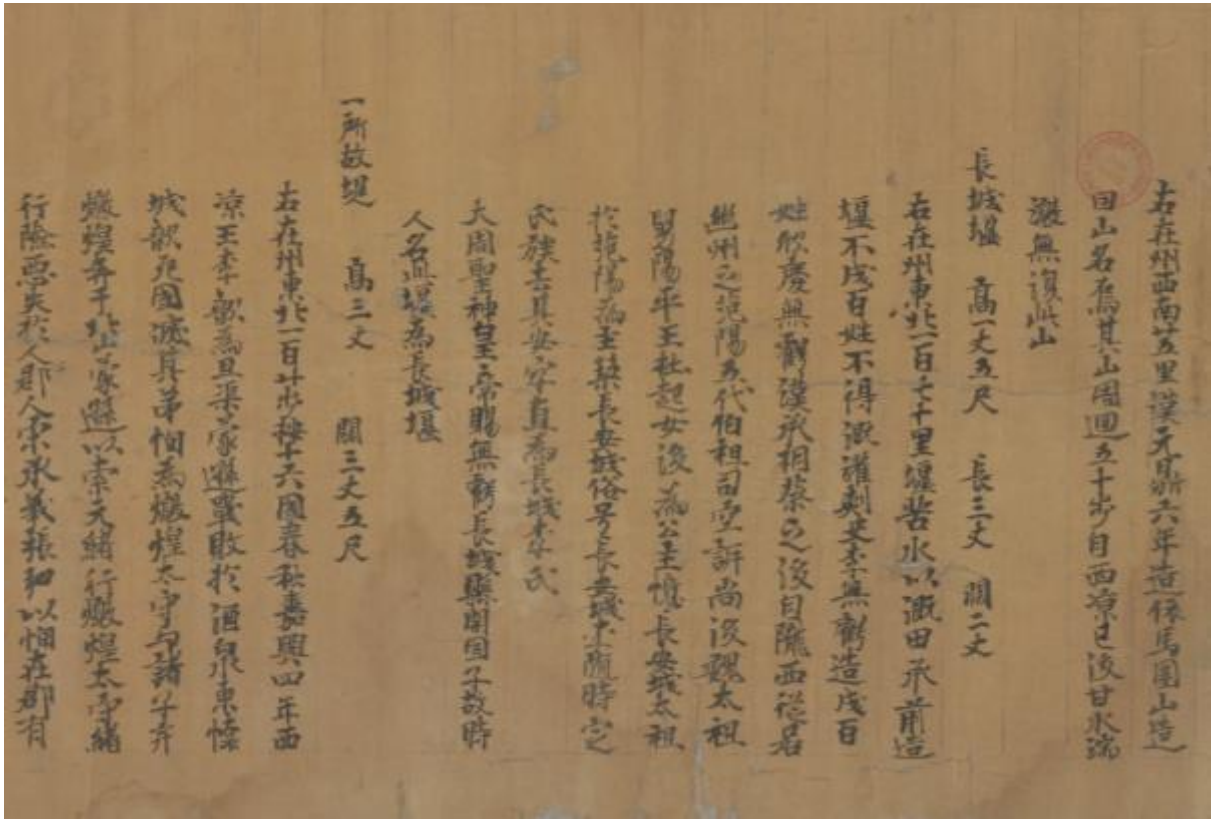 右在州西南廿五里漢元鼎六年造依馬圈山造
因山名焉其山周迴五十步自西涼已後甘水湍
激無復此山
長城堰 高一丈五尺 長三丈 闊二丈
右在州東北一百七十里堰苦水以溉田承前造
堰不成百姓不得溉灌刺史李無虧造成百
姓欣慶無虧漢丞相蔡之後自隴西徙居
幽州之范陽五代伯祖司空訢尚後魏太祖
舅陽平王杜超女後為公主憶長安城太祖
於范陽為主築長安城俗号長安城李隨時定
氏族去其安字直為長城李氏
大周聖神皇帝賜無虧長城縣開国子故時
人名此堰為長城堰
一所故堤 高三丈 闊三丈五尺
右在州東北一百廿步按十六国春秋嘉興四年西
涼王李歆為且渠蒙遜戰敗於酒泉東懷
城歆死国滅其弟恂為燉煌太守与諸子弃
燉煌奔于北山蒙遜以索元緒行燉煌太守緒
行險惡失於人郡人宋承義張弘以恂在郡有